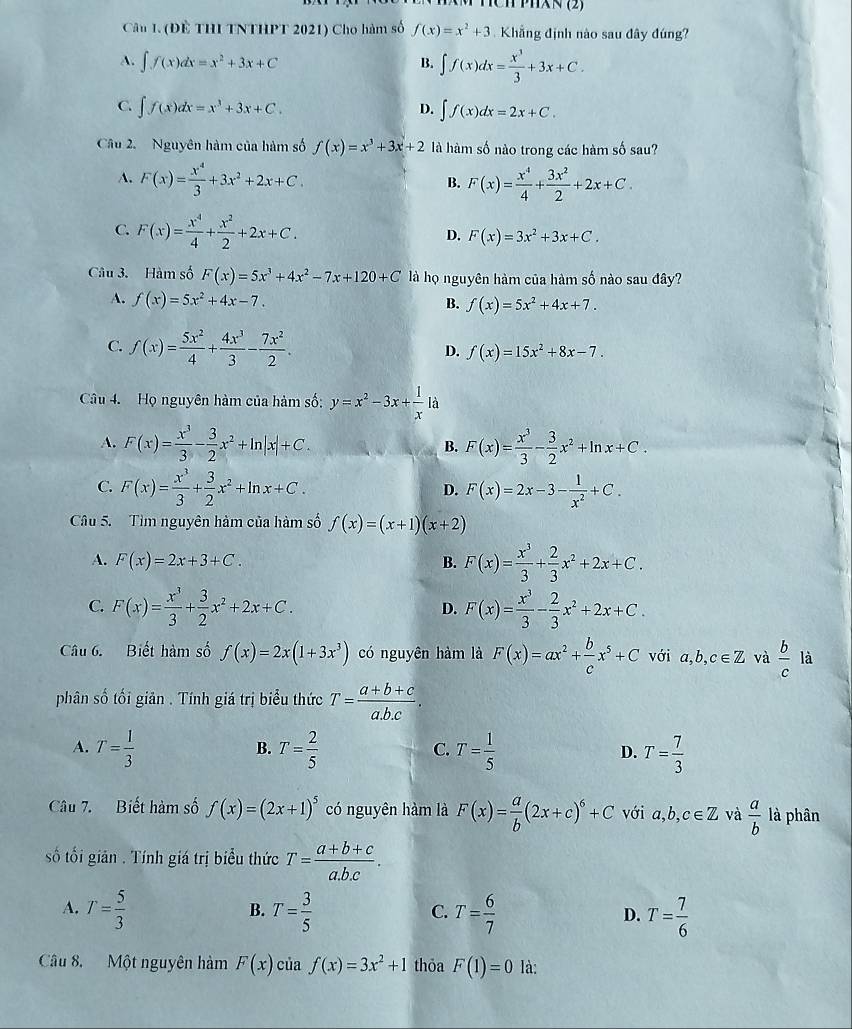 HÀM TÍCH PHÂN (2)
Câu 1. (ĐỀ THI TNTHPT 2021) Cho hàm số f(x) = x² + 3 . Khẳng định nào sau đây đúng?
A. ∫f(x)dx = x² + 3x + C B. ∫f(x)dx = x³/3 + 3x + C .
C. ∫f(x)dx = x³ + 3x + C . D. ∫f(x)dx = 2x + C .
Câu 2. Nguyên hàm của hàm số f(x) = x³ + 3x + 2 là hàm số nào trong các hàm số sau?
A. F(x) = x⁴/3 + 3x² + 2x + C . B. F(x) = x⁴/4 + 3x²/2 + 2x + C .
C. F(x) = x⁴/4 + x²/2 + 2x + C . D. F(x) = 3x² + 3x + C .
Câu 3. Hàm số F(x) = 5x³ + 4x² − 7x + 120 + C là họ nguyên hàm của hàm số nào sau đây?
A. f(x) = 5x² + 4x − 7 . B. f(x) = 5x² + 4x + 7 .
C. f(x) = 5x²/4 + 4x³/3 − 7x²/2 . D. f(x) = 15x² + 8x − 7 .
Câu 4. Họ nguyên hàm của hàm số: y = x² − 3x + 1/x là
A. F(x) = x³/3 − 3/2 x² + ln|x| + C . B. F(x) = x³/3 − 3/2 x² + ln x + C .
C. F(x) = x³/3 + 3/2 x² + ln x + C . D. F(x) = 2x − 3 − 1/x² + C .
Câu 5. Tìm nguyên hàm của hàm số f(x) = (x+1)(x+2)
A. F(x) = 2x + 3 + C . B. F(x) = x³/3 + 2/3 x² + 2x + C .
C. F(x) = x³/3 + 3/2 x² + 2x + C . D. F(x) = x³/3 − 2/3 x² + 2x + C .
Câu 6. Biết hàm số f(x) = 2x(1+3x³) có nguyên hàm là F(x) = ax² + b/c x⁵ + C với a,b,c ∈ ℤ và b/c là
phân số tối giản . Tính giá trị biểu thức T = (a+b+c)/(a.b.c) .
A. T = 1/3 B. T = 2/5 C. T = 1/5 D. T = 7/3
Câu 7. Biết hàm số f(x) = (2x+1)⁵ có nguyên hàm là F(x) = a/b (2x+c)⁶ + C với a,b,c ∈ ℤ và a/b là phân
số tối giản . Tính giá trị biểu thức T = (a+b+c)/(a.b.c) .
A. T = 5/3 B. T = 3/5 C. T = 6/7 D. T = 7/6
Câu 8. Một nguyên hàm F(x) của f(x) = 3x² + 1 thỏa F(1) = 0 là: